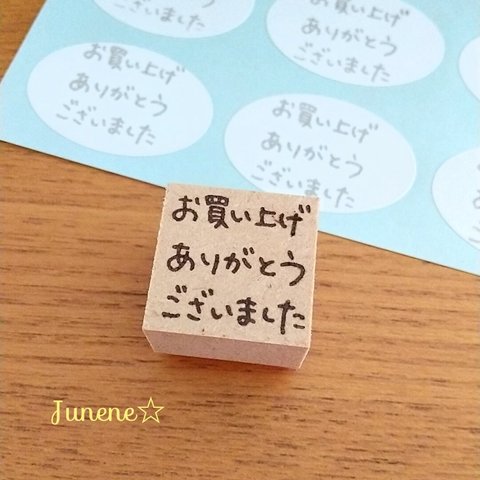 お買い上げ
ありがとう
ございました
お買い上げ
ありがとう
ございました
お買い上げ
ありがとう
ございました
お買い上げ
ありがとう
ございました
Junene☆